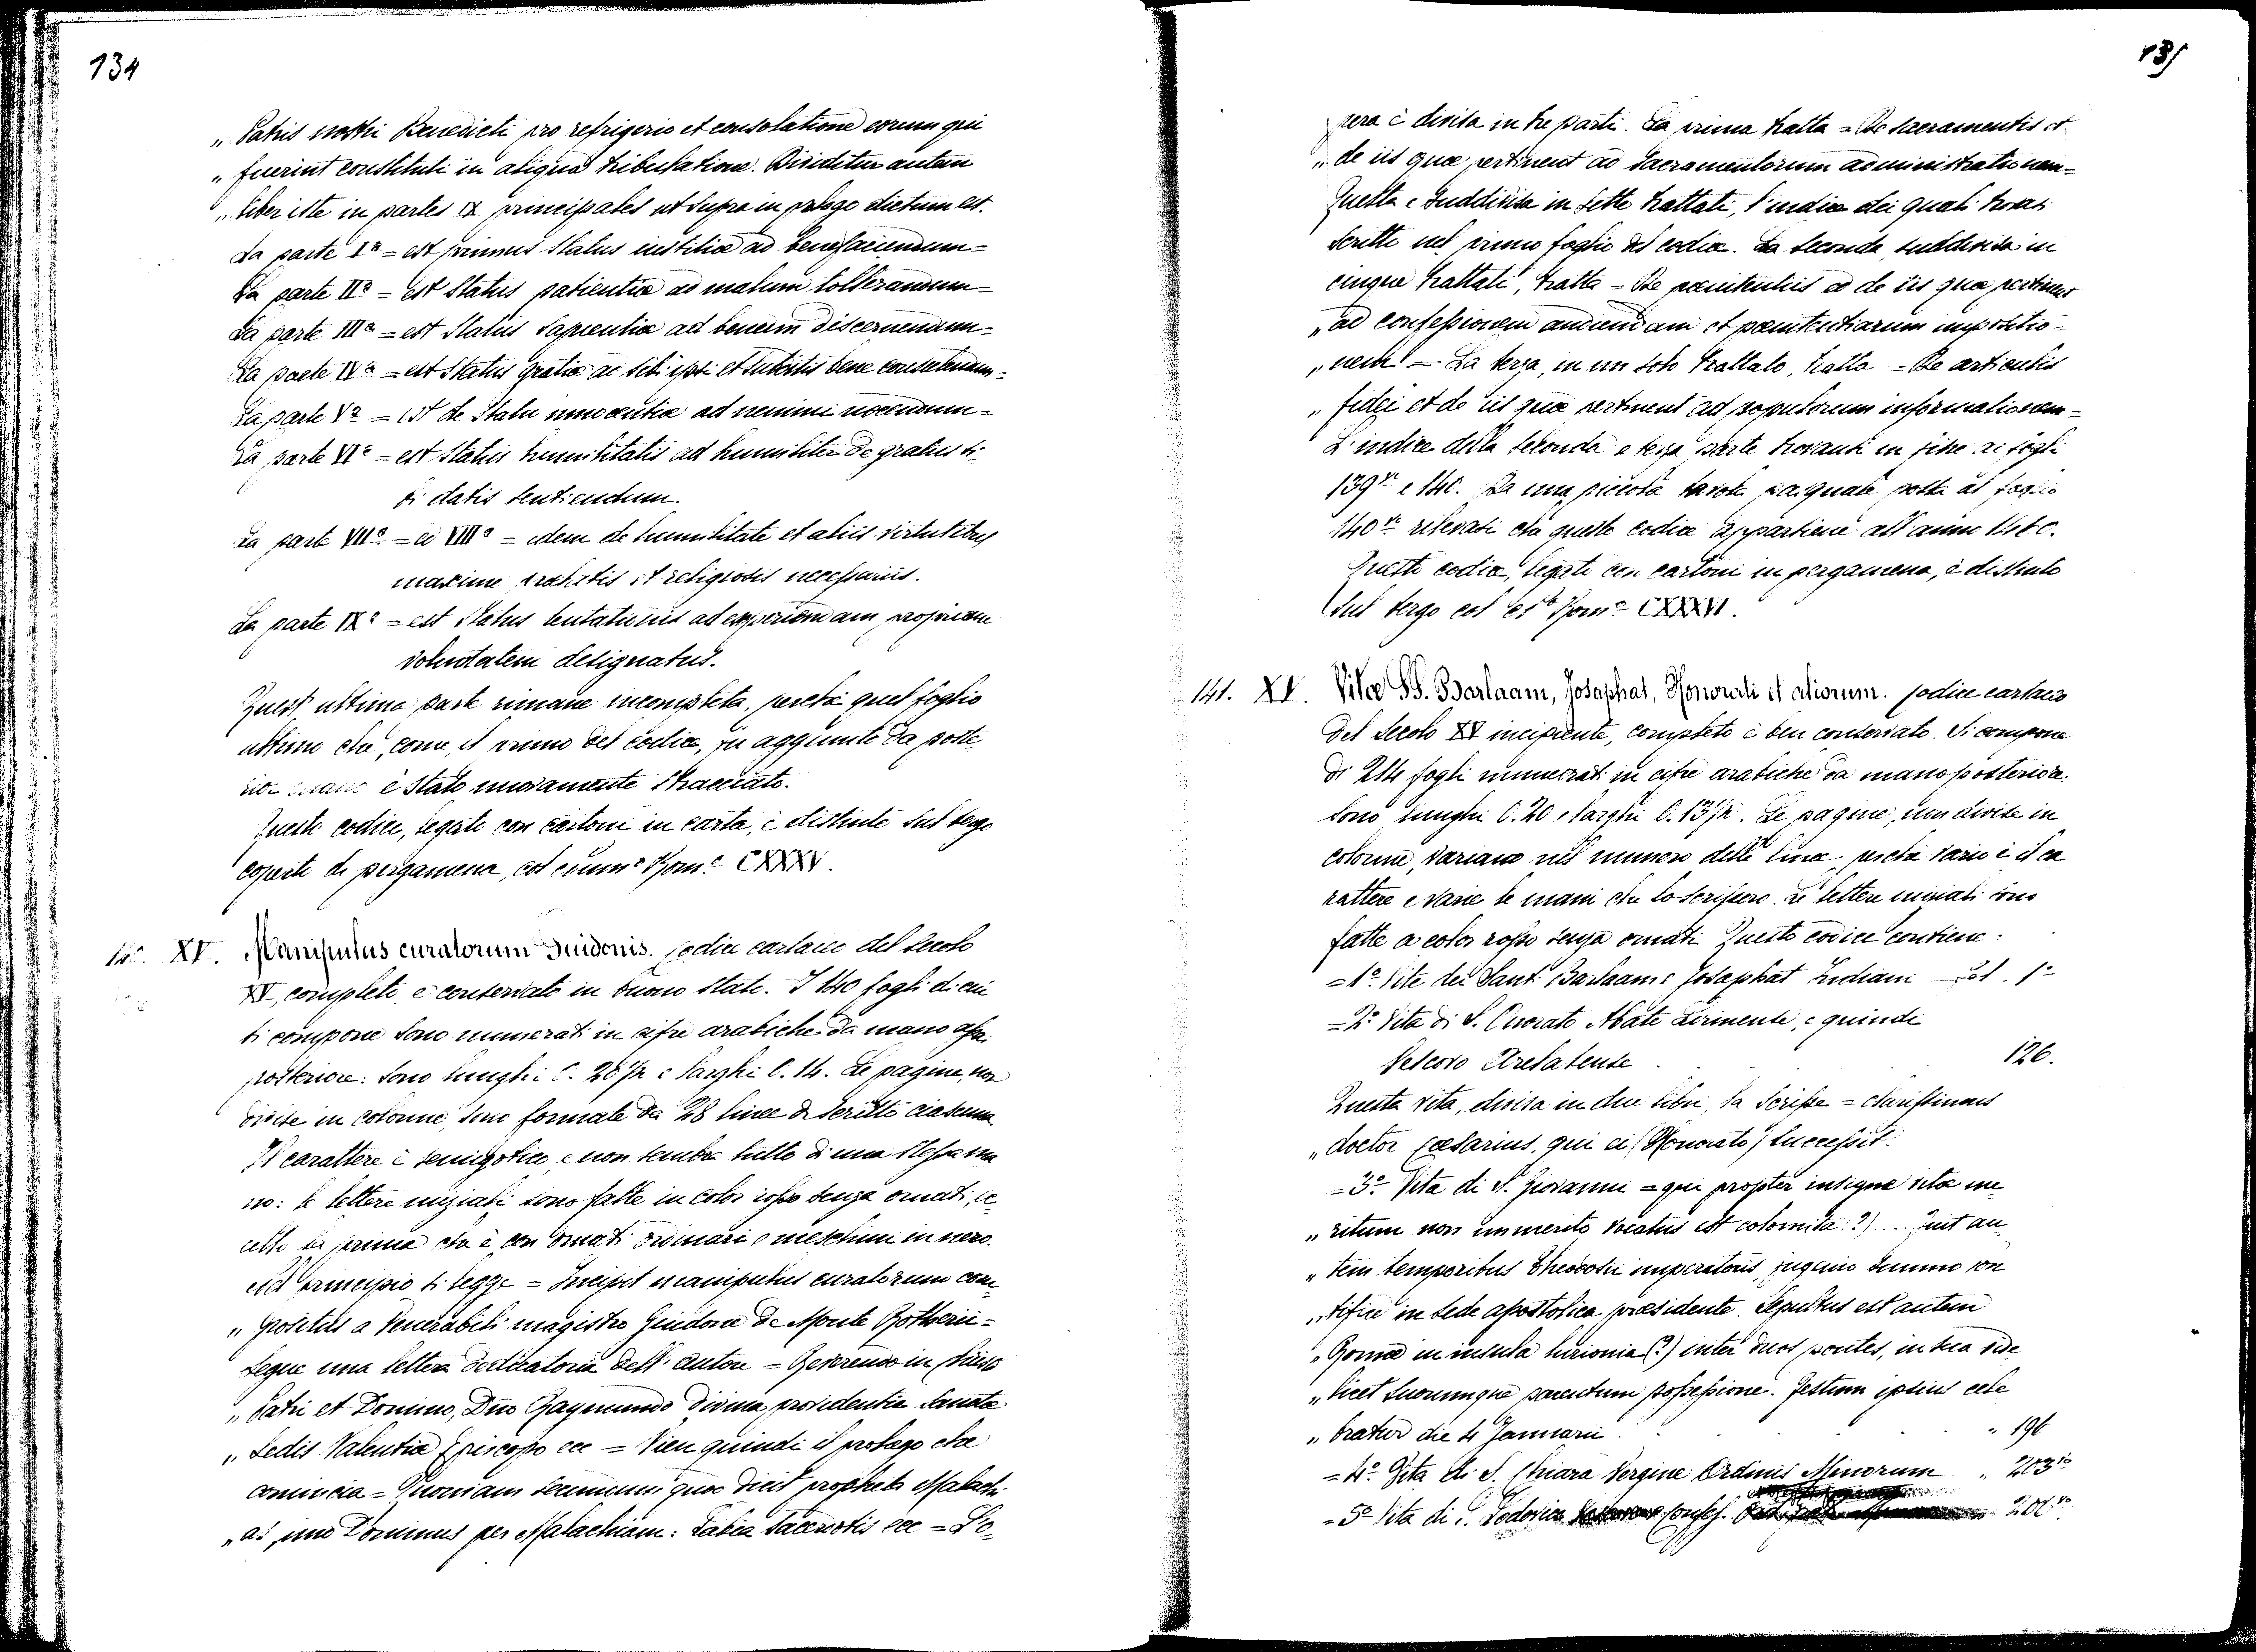 134
„ Patris nostri Benedicti pro refrigerio et consolatione eorum qui
„ fuerint constituti in aliqua tribulatione. Dividitur autem
„ liber iste in partes IX principales ut supra in prologo dictum est.
La parte Iª = est primus status iustitiæ ad benefaciendum =
La parte IIª = est status patientiæ ad malum tollerandum =
La parte IIIª = est status sapientiæ ad bonum discernendum =
La parte IVª = est status gratiæ ac sibi ipsi et subditis bene consulendum =
La parte Vª = est de statu innocentiæ ad nemini nocendum =
La parte VIª = est status humilitatis ad humiliter de gratiis si-
bi datis sentiendum.
La parte VIIª = ed VIIIª = idem de humilitate et aliis virtutibus
maxime prælatis et religiosis necessariis.
La parte IXª = est status tentationis ad experiendam propriam
voluntatem designatus.
Quest' ultima parte rimane incompleta, perchè quel foglio
ultimo che, come il primo del codice, fu aggiunto da poste
rior mano è stato nuovamente stracciato.
Questo codice, legato con cartoni in carta, è distinto sul tergo
coperto di pergamena, col numº Romº CXXXV.
140. XV. Manipulus curatorum Guidonis. Codice cartaceo del secolo
XV, completo, e conservato in buono stato. I 140 fogli di cui
si compone sono numerati in cifre arabiche da mano assai
posteriore: sono lunghi C. 20 1/2 e larghi C. 14. Le pagine, non
divise in colonne, sono formate da 28 linee di scritto ciascuna
Il carattere è semigotico, e non sembra tutto di una stessa ma
no: le lettere iniziali sono fatte in color rosso senza ornati, ec
cetto la prima che è con ornati ordinari e meschini in nero.
Nel principio si legge = Incipit manipulus curatorum com-
„ positus a Venerabili magistro Guidone de Monte Rotherii =
Segue una lettera dedicatoria dell' autore = Reverendo in Christo
„ Patri et Domino, Dno Raymundo divina providentia Sanctæ
„ Sedis Valentiæ Episcopo ecc = Vien quindi il prologo che
comincia = Quoniam secundum quod dicit propheta Malachi-
„ as, imo Dominus per Malachiam: Labia sacerdotis ecc = L'o-
135
pera è divisa in tre parti. La prima tratta = De sacramentis et
„ de iis quæ pertinent ad sacramentorum administrationem =
Questa è suddivisa in sette trattati, l'indice dei quali trovasi
scritto nel primo foglio del codice. La seconda, suddivisa in
cinque trattati, tratta = De pœnitentiis et de iis quæ pertinent
„ ad confessionem audiendam et pœnitentiarum impositio-
„ nem. = La terza, in un solo trattato, tratta = De articulis
„ fidei et de iis quæ pertinent ad populorum informationem =
L'indice della seconda e terza parte trovansi in fine ai fogli
139vo e 140. Da una piccola tavola pasquale posta al foglio
140vo rilevasi che questo codice appartiene all'anno
Questo codice, legato con cartoni in pergamena, è distinto
sul tergo col Romº CXXXVI.
141. XV. Vitæ SS. Barlaam, Josaphat, Honorati et aliorum. Codice cartaceo
del secolo XV incipiente, completo e ben conservato. Si compone
di 214 fogli numerati in cifre arabiche da mano posteriore.
Sono lunghi C. 20 e larghi C. 13 1/2. Le pagine, non divise in
colonne, variano nel numero delle linee, perchè vario è il ca
rattere e varie le mani che lo scrissero. Le lettere iniziali sono
fatte a color rosso senza ornati. Questo codice contiene:
= 1º Vite dei Santi Barlaam e Josaphat Indiani Fol. 1º
= 2º Vita di S. Onorato Abate Lirinense, e quindi
Vescovo Arelatense 126.
Questa vita, divisa in due libri, la scrisse = clarissimus
„ doctor Cæsarius, qui ei (Honorato) successit.
= 3º Vita di S. Giovanni = qui propter insigne vitæ me-
„ ritum non immerito vocatus est colomita (?) ... Fuit au-
„ tem temporibus Theodosii imperatoris, Eugenio summo pon
„ tifice in sede apostolica præsidente. Sepultus est autem
„ Romæ in insula lurionia (?) inter duos pontes, in sua vide
„ licet suorumque parentum possessione. Festum ipsius cele
„ bratur die 4 Januarii „ 196
= 4º Vita di S. Chiara Vergine Ordinis Minorum „ 203vo
= 5º Vita di S. Confess.